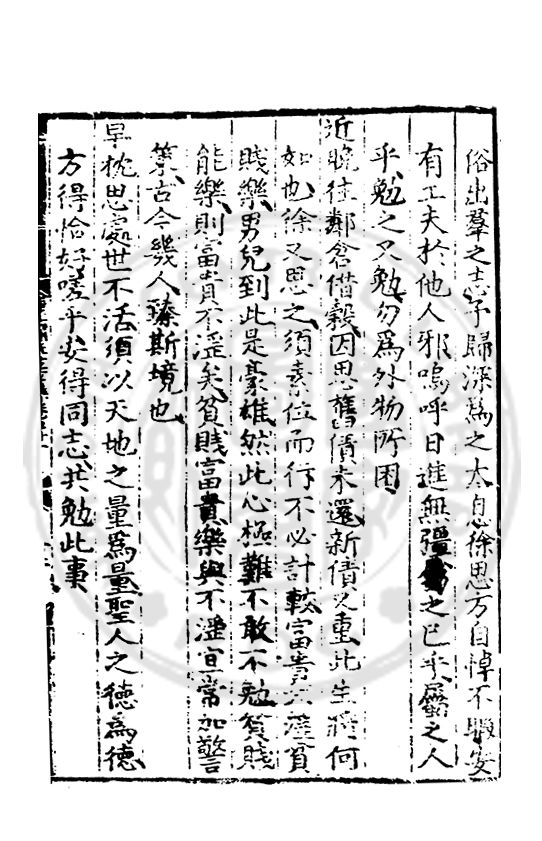 俗出羣之志予歸深爲之太息徐思方自悼不暇安
有工夫於他人邪嗚呼日進無疆屬之己乎屬之人
乎勉之又勉勿爲外物所困
近晚往鄰倉借穀因思舊債未還新債又重此生將何
如也徐又思之須素位而行不必計較富貴不淫貧
賤樂男兒到此是豪雄然此心極難不敢不勉貧賤
能樂則富貴不淫矣貧賤富貴樂與不淫宜常加警
策古今幾人臻斯境也
早枕思處世不活須以天地之量爲量聖人之德爲德
方得恰好嗟乎安得同志共勉此事